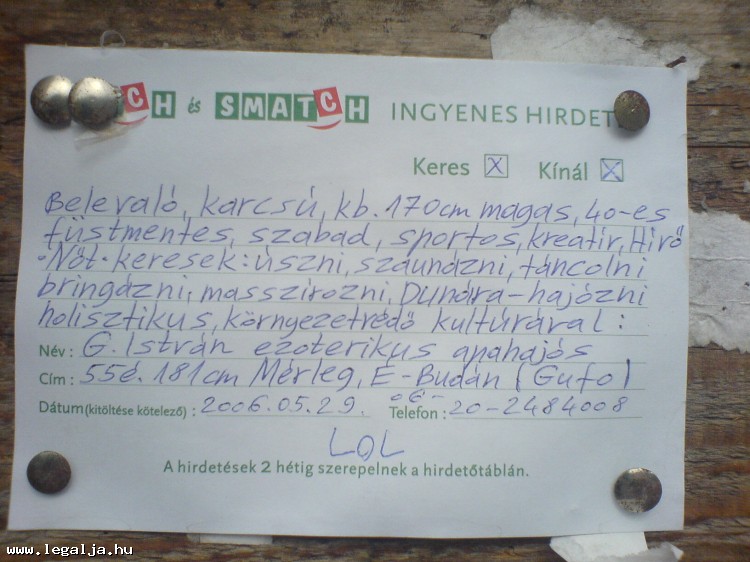 CH és SMATCH INGYENES HIRDET
Keres X Kínál X
Belevaló, karcsú, kb. 170cm magas, 40-es
füstmentes, szabad, sportos, kreatív, Hívő
·Nőt· keresek: úszni, szaunázni, táncolni
bringázni, masszírozni, Dunára-hajózni
holisztikus, környezetvédő kultúrával:
Név: G. István ezoterikus apahajós
Cím: 55é. 181cm Mérleg, É-Budán (Gufo)
Dátum (kitöltése kötelező): 2006.05.29. Telefon: 20-2484008
LOL
A hirdetések 2 hétig szerepelnek a hirdetőtáblán.
www.legalja.hu